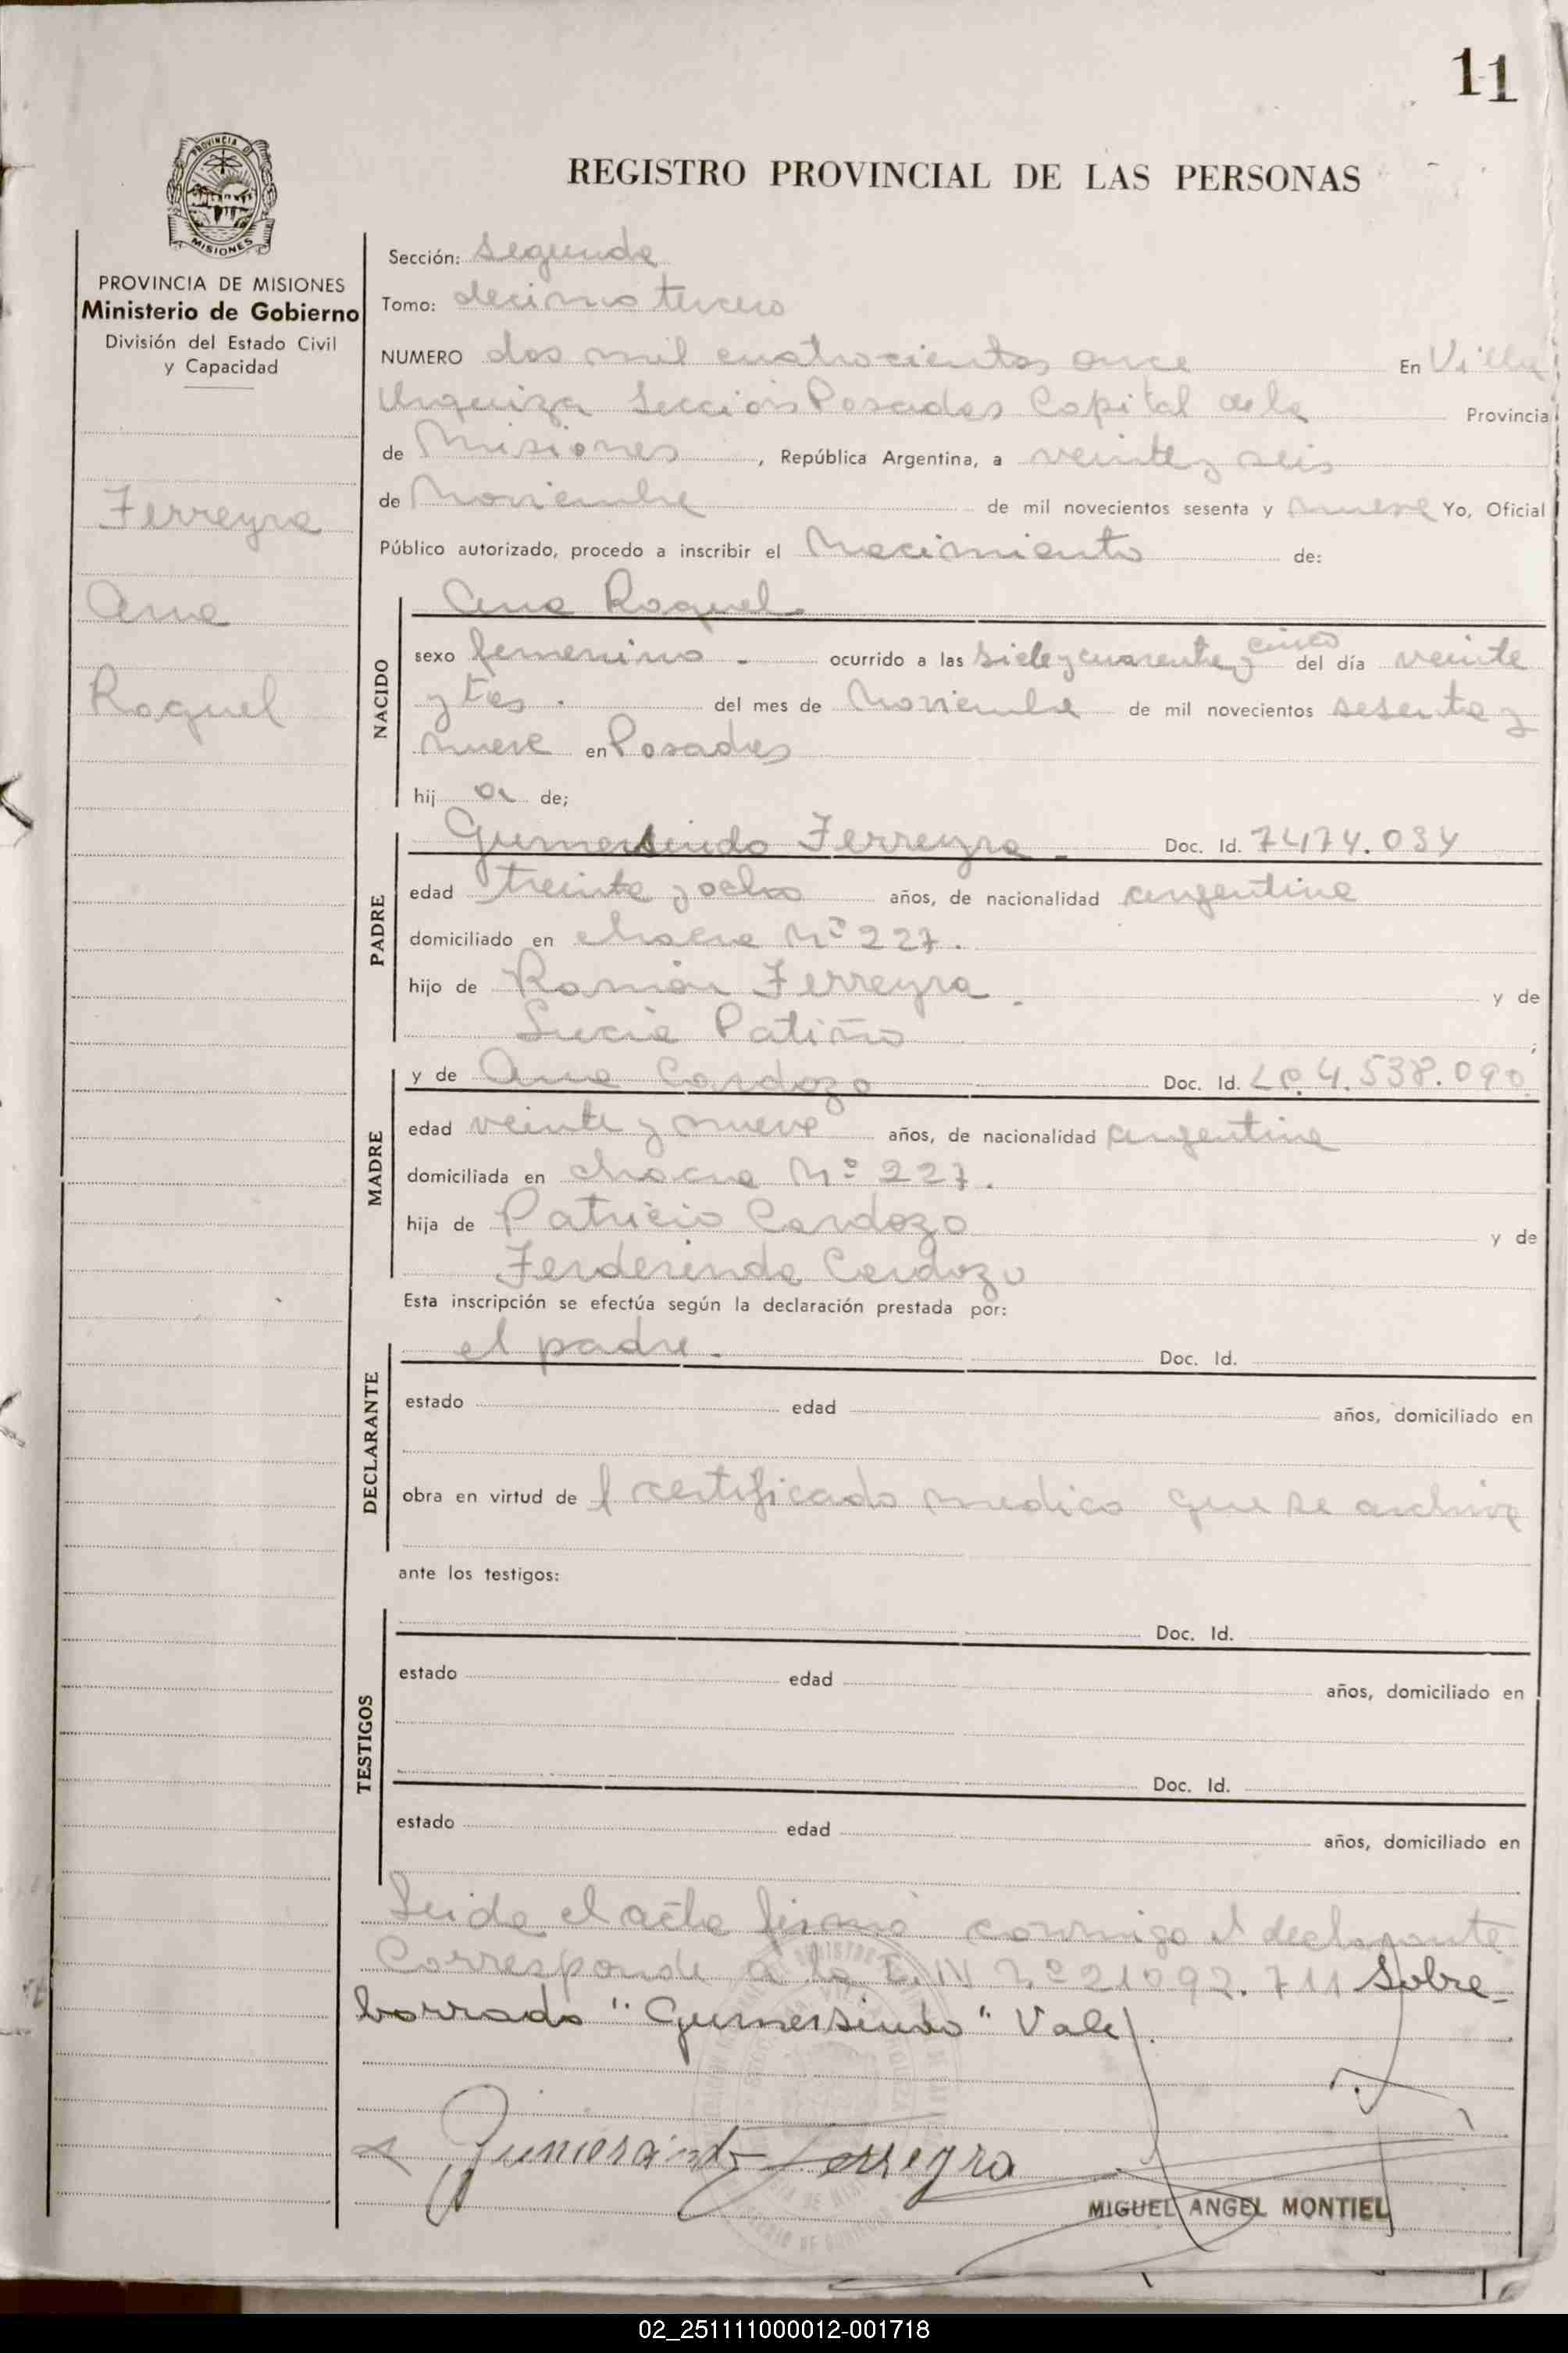 11
PROVINCIA DE MISIONES
REGISTRO PROVINCIAL DE LAS PERSONAS
PROVINCIA DE MISIONES
Ministerio de Gobierno
División del Estado Civil
y Capacidad
Ferreyra
Ana
Raquel
Sección: Segunda
Tomo: decimo tercero
NUMERO dos mil cuatrocientos once En Villa
Urquiza Sección Posadas Capital de la Provincia
de Misiones, República Argentina, a veinte y seis
de Noviembre de mil novecientos sesenta y nueve Yo, Oficial
Público autorizado, procedo a inscribir el Nacimiento de:
NACIDO
Ana Raquel.
sexo femenino - ocurrido a las siete y cuarenta y cinco del día veinte
y tres. del mes de Noviembre de mil novecientos sesenta y
nueve en Posadas
hij a de;
PADRE
Gumersindo Ferreyra - Doc. Id. 7474.034
edad treinta y ocho años, de nacionalidad argentina
domiciliado en chacra Nº 227.
hijo de Ramón Ferreyra. y de
Lucia Patiño
MADRE
y de Ana Cardozo Doc. Id. LC. 4.538.090
edad veinte y nueve años, de nacionalidad argentina
domiciliada en chacra Nº 227.
hija de Patricio Cardozo y de
Ferderinda Cardozo
Esta inscripción se efectúa según la declaración prestada por:
DECLARANTE
el padre. Doc. Id.
estado edad años, domiciliado en
obra en virtud de l certificado medico que se archiva
ante los testigos:
TESTIGOS
Doc. Id.
estado edad años, domiciliado en
Doc. Id.
estado edad años, domiciliado en
Leida el acta firma conmigo el declarante
Corresponde a la D.N.I Nº 21092.711 Sobre-
borrado "Gumersindo" Vale.
Gumersindo Ferreyra
MIGUEL ANGEL MONTIEL
02_251111000012-001718